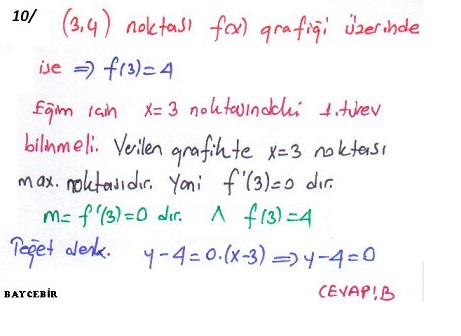 10/ (3,4) noktası f(x) grafiği üzerinde
ise ⇒ f(3)=4
Eğim için x=3 noktasındaki 1.türev
bilinmeli. Verilen grafikte x=3 noktası
max. noktasıdır. Yani f'(3)=0 dır.
m=f'(3)=0 dır. ∧ f(3)=4
Teğet denk. y-4=0.(x-3) ⇒ y-4=0
BAYCEBİR CEVAP!B